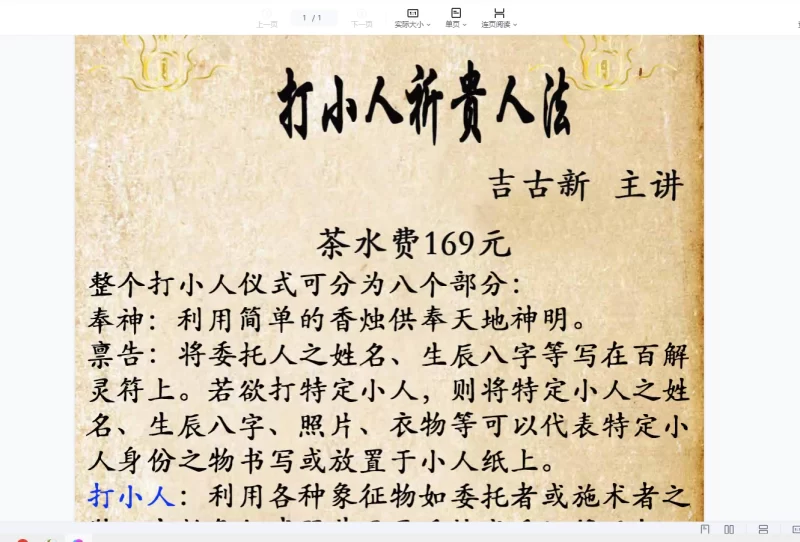 上一页
1 / 1
下一页
实际大小
单页
连页阅读
打小人祈貴人法
吉古新 主讲
茶水费169元
整个打小人仪式可分为八个部分：
奉神：利用简单的香烛供奉天地神明。
禀告：将委托人之姓名、生辰八字等写在百解
灵符上。若欲打特定小人，则将特定小人之姓
名、生辰八字、照片、衣物等可以代表特定小
人身份之物书写或放置于小人纸上。
打小人：利用各种象征物如委托者或施术者之